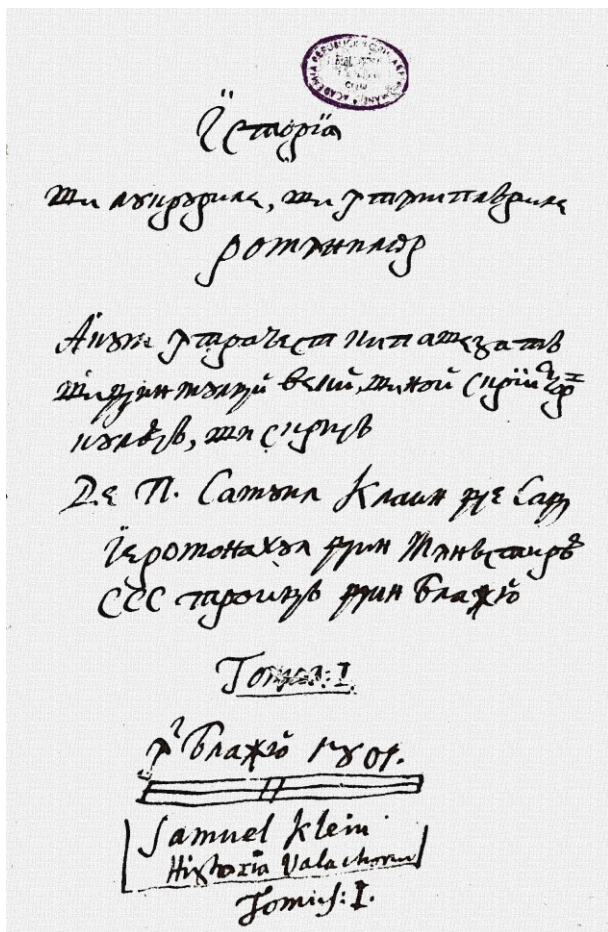 Їсторїа
ши лꙋкрꙋриле, ши ꙟтѫмплѫриле
ромѫнилѡр
Акꙋм ꙟтрачест кип ашезате
ши дин мꙋлцй векй, ши ной скрїиторй
кꙋлѣсѣ, ши скрисѣ
Де П. Самꙋил Клаин де Сад
Їеромонахꙋл дин Мѫнѫстирѣ
ССС троицѣ дин Блажю
Томꙋл: I.
ꙟ Блажю 1801.
Samuel Klein
Historia Valachorum
Tomus: I.